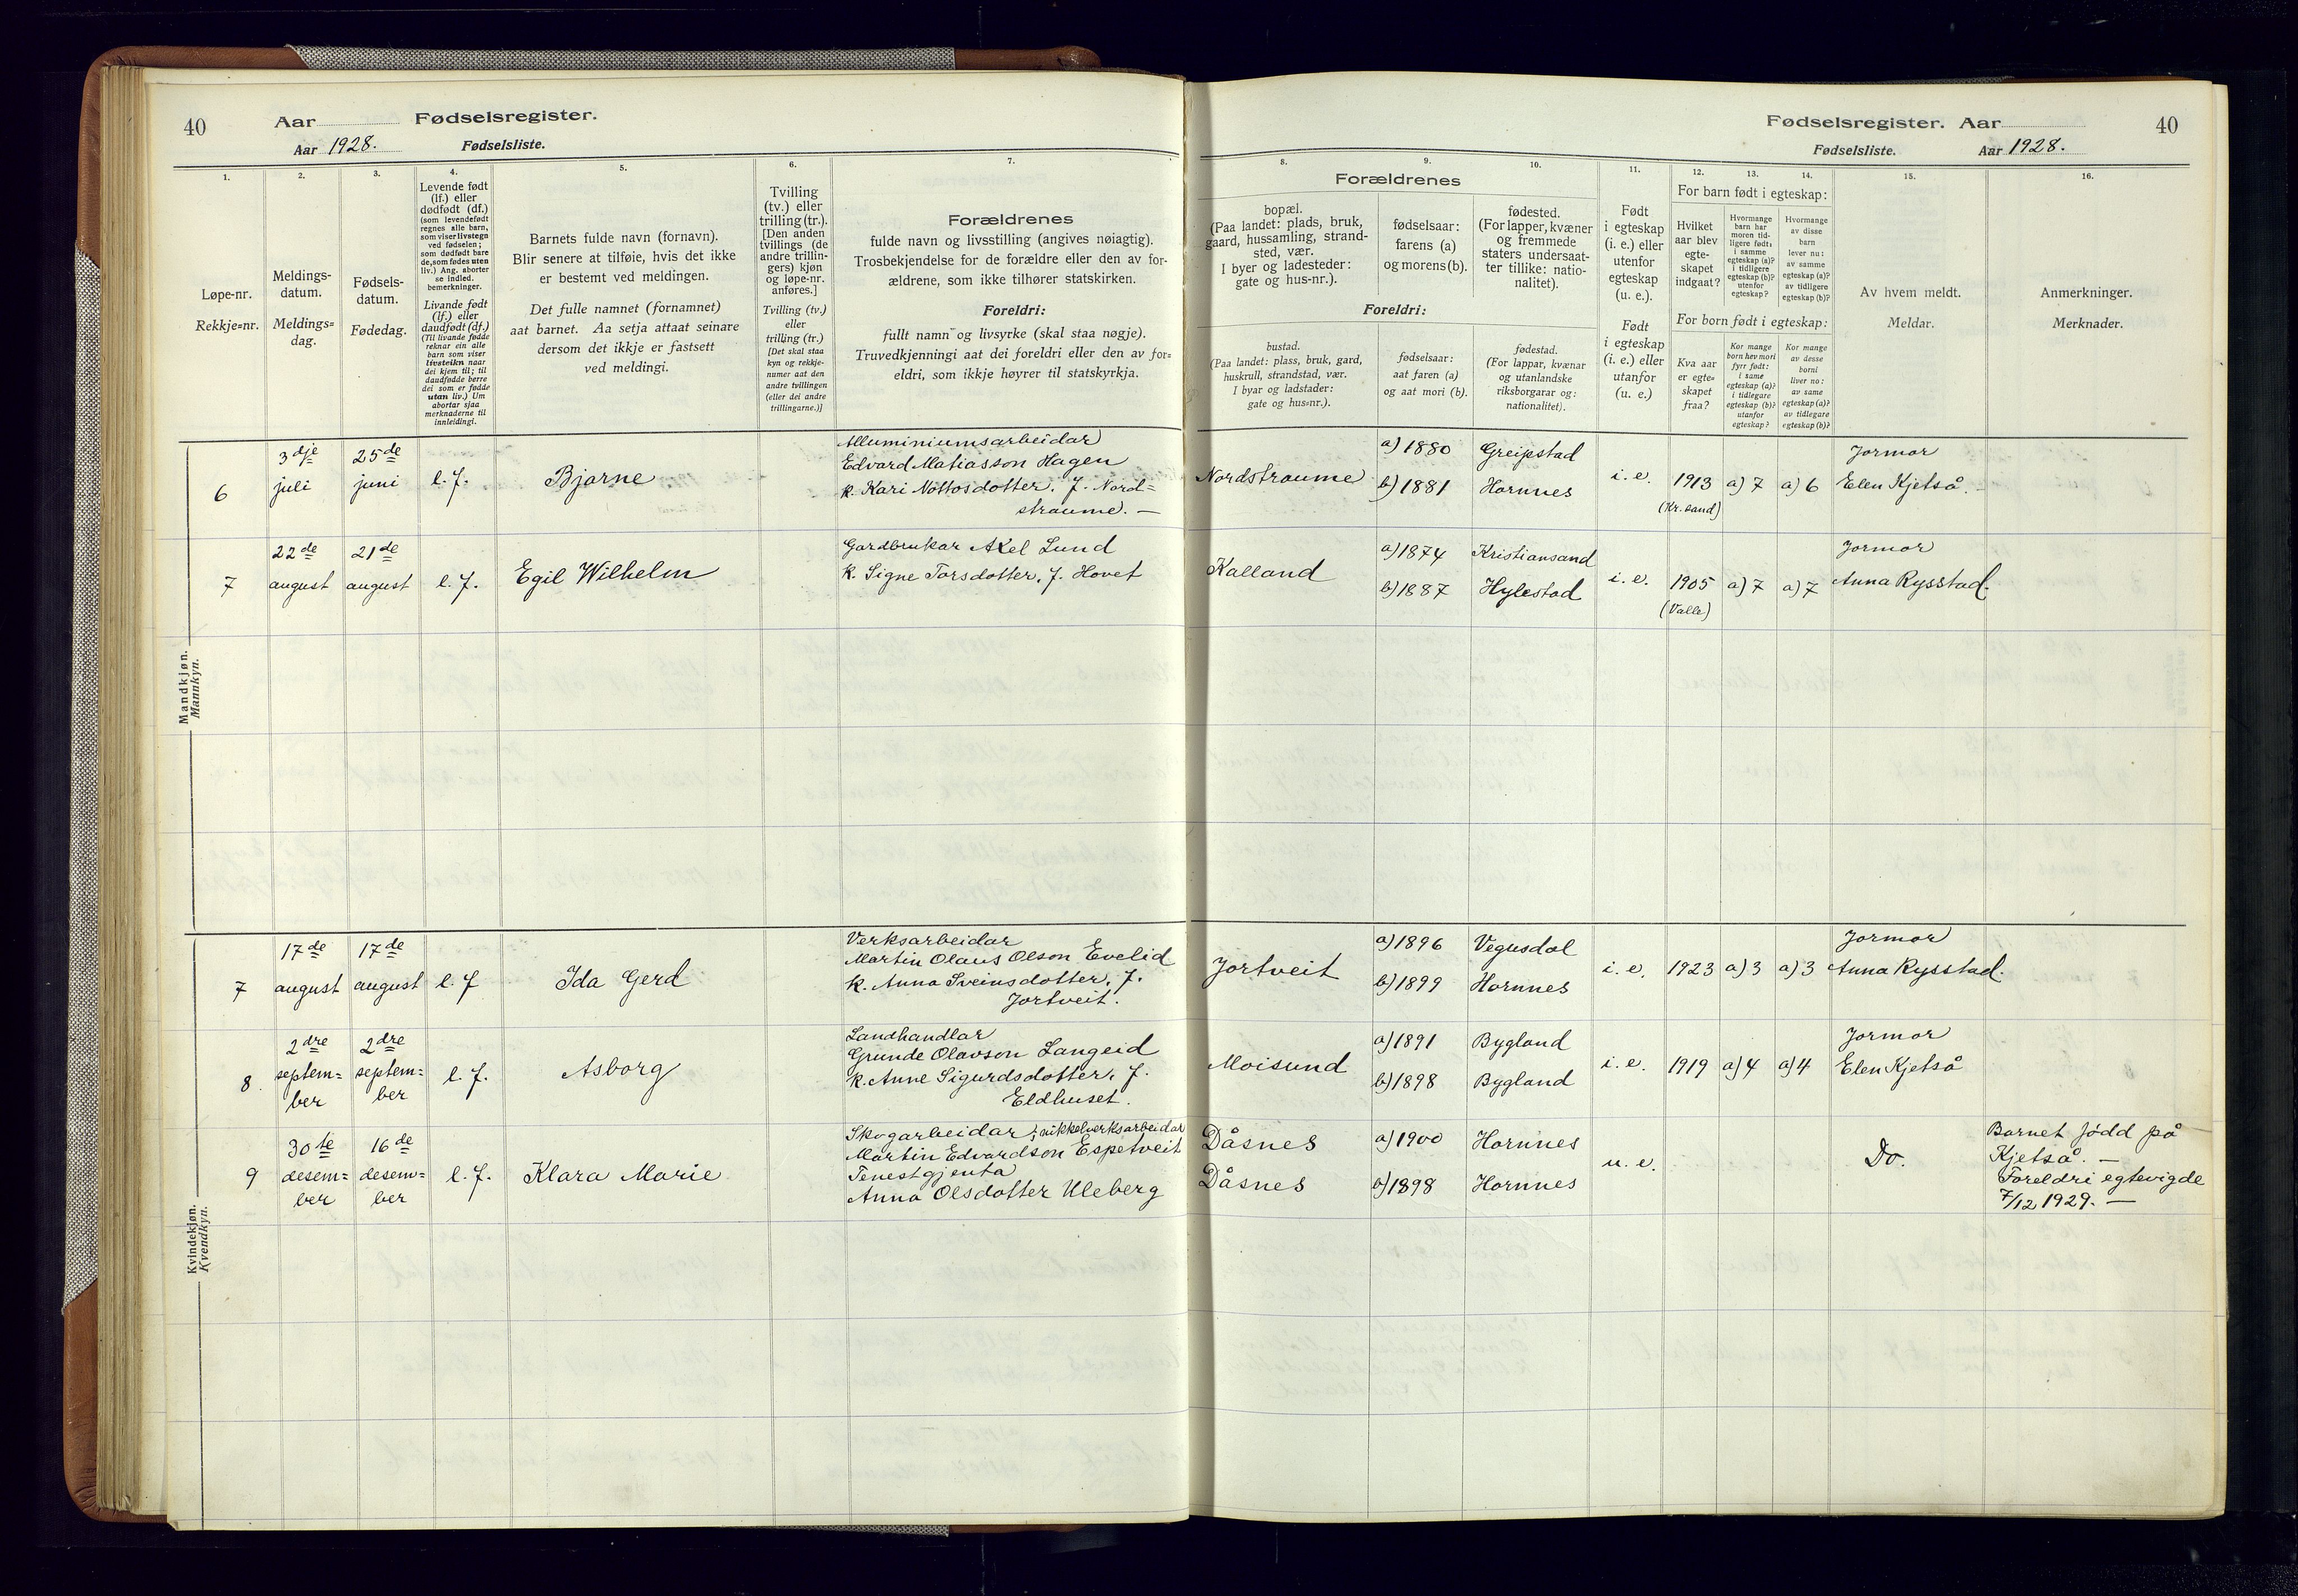 40
Aar
Fødselsregister.
Aar 1928.
Fødselsliste.
Fødselsregister. Aar
40
Fødselsliste.
Aar 1928.
1.
Løpe-nr.
Rekkje=nr.
2.
Meldings-
datum.
Meldings=
dag.
3.
Fødsels-
datum.
Fødedag.
4.
Levende født
(lf.) eller
dødfødt (df.)
(som levendefødt
regnes alle barn,
som viser livstegn
ved fødselen;
som dødfødt bare
de, som fødes uten
liv.) Ang. aborter
se indled.
bemerkninger.
Livande født
(lf.) eller
daudfødt (df.)
(Til livande fødde
reknar ein alle
barn som viser
livsteikn naar
dei kjem til; til
daudfødde berre
dei som er fødde
utan liv.) Um
abortar sjaa
merknaderne til
innleidingi.
5.
Barnets fulde navn (fornavn).
Blir senere at tilføie, hvis det ikke
er bestemt ved meldingen.
Det fulle namnet (fornamnet)
aat barnet. Aa setja attaat seinare
dersom det ikkje er fastsett
ved meldingi.
6.
Tvilling
(tv.) eller
trilling (tr.).
[Den anden
tvillings (de
andre trillin-
gers) kjøn
og løpe-nr.
anføres.]
Tvilling (tv.)
eller
trilling (tr.)
[Det skal staa
kyn og rekkje-
numer aat den
andre tvillingen
(eller dei andre
trillingarne.)]
7.
Forældrenes
fulde navn og livsstilling (angives nøiagtig).
Trosbekjendelse for de forældre eller den av for-
ældrene, som ikke tilhører statskirken.
Foreldri:
fullt namn og livsyrke (skal staa nøgje).
Truvedkjenningi aat dei foreldri eller den av for=
eldri, som ikkje høyrer til statskyrkja.
8.
9.
10.
Forældrenes
bopæl.
(Paa landet: plads, bruk,
gaard, hussamling, strand-
sted, vær.
I byer og ladesteder:
gate og hus-nr.).
fødselsaar:
farens (a)
og morens (b).
fødested.
(For lapper, kvæner
og fremmede
staters undersaat-
ter tillike: natio-
nalitet).
Foreldri:
bustad.
(Paa landet: plass, bruk, gard,
huskrull, strandstad, vær.
I byar og ladstader:
gate og hus=nr.).
fødselsaar:
aat faren (a)
og aat mori (b).
fødestad.
(For lappar, kvænar
og utanlandske
riksborgarar og:
nationalitet).
11.
Født
i egteskap
(i. e.) eller
utenfor
egteskap
(u. e.).
Født
i egteskap
(i. e.) eller
utanfor
(u. e.)
12.
13.
14.
For barn født i egteskap:
Hvilket
aar blev
egte-
skapet
indgaat?
Hvormange
barn har
moren tid-
ligere født:
i samme
egteskap (a)?
i tidligere
egteskap (b)?
utenfor
egteskap?
Hvormange
av disse
barn
lever nu:
av samme
egteskap (a)?
av tidligere
egteskap (b)?
For born født i egteskap:
Kva aar
er egte=
skapet
fraa?
Kor mange
born hev mori
fyrr født:
i same
egteskap (a)?
i tidlegare
egteskap (b)?
utanfor
egteskap?
Kor mange
av desse
borni
liver no:
av same
egteskap (a)?
av tidlegare
egteskap (b)?
15.
Av hvem meldt.
Meldar.
16.
Anmerkninger.
Merknader.
Mandkjøn.
Mannkyn.
6
3dje
juli
25de
juni
l. f.
Bjarne
Alluminiumsarbeidar
Edvard Matiasson Hagen
k. Kari Nottosdotter, f. Nord=
straume. —
Nordstraume
a) 1880
b) 1881
Greipstad
Hornnes
i. e.
1913
(Kr. sand)
a) 7
a) 6
Jormor
Elen Kjetså.
7
22de
august
21de
august
l. f.
Egil Wilhelm
Gardbrukar Axel Lund
k. Signe Torsdotter, f. Hovet
Kalland
a) 1874
b) 1887
Kristiansand
Hylestad
i. e.
1905
(Valle)
a) 7
a) 7
Jormor
Anna Rysstad.
Kvindekjøn.
Kvendkyn.
7
17de
august
17de
august
l. f
Ida Gerd
Verksarbeidar
Martin Olaus Olson Evelid
k. Anna Sveinsdotter, f.
Jortveit.
Jortveit
a) 1896
b) 1899
Vegusdal
Hornnes
i. e.
1923
a) 3
a) 3
Jormor
Anna Rysstad.
8.
2dre
septem=
ber
2dre
septem=
ber
l. f.
Asborg
Landhandlar
Grunde Olavson Langeid
k. Anne Sigurdsdotter, f.
Eldhuset.
Moisund
a) 1891
b) 1898
Bygland
Bygland
i. e.
1919
a) 4
a) 4
Jormor
Elen Kjetså
9
30te
desem=
ber
16de
desem=
ber
l. f.
Klara Marie
Skogarbeidar; nikkelverksarbeidar
Martin Edvardson Espetveit
Tenestgjenta
Anna Olsdotter Uleberg
Dåsnes
Dåsnes
a) 1900
b) 1898
Hornnes
Hornnes
u. e.
Do.
Barnet fødd på
Kjetså. —
Foreldri egtevigde
7/12 1929. —